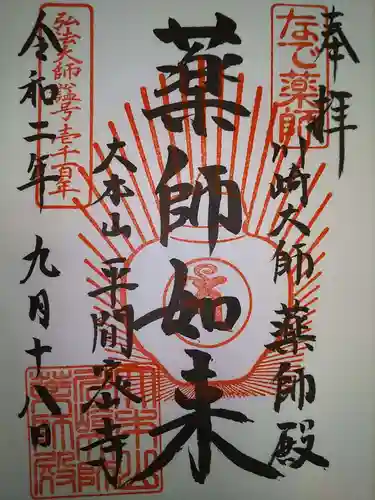 奉拝
なで薬師
川崎大師 薬師殿
薬師如来
大本山 平間寺
弘法大師諡号壱千百年
令和二年 九月十八日